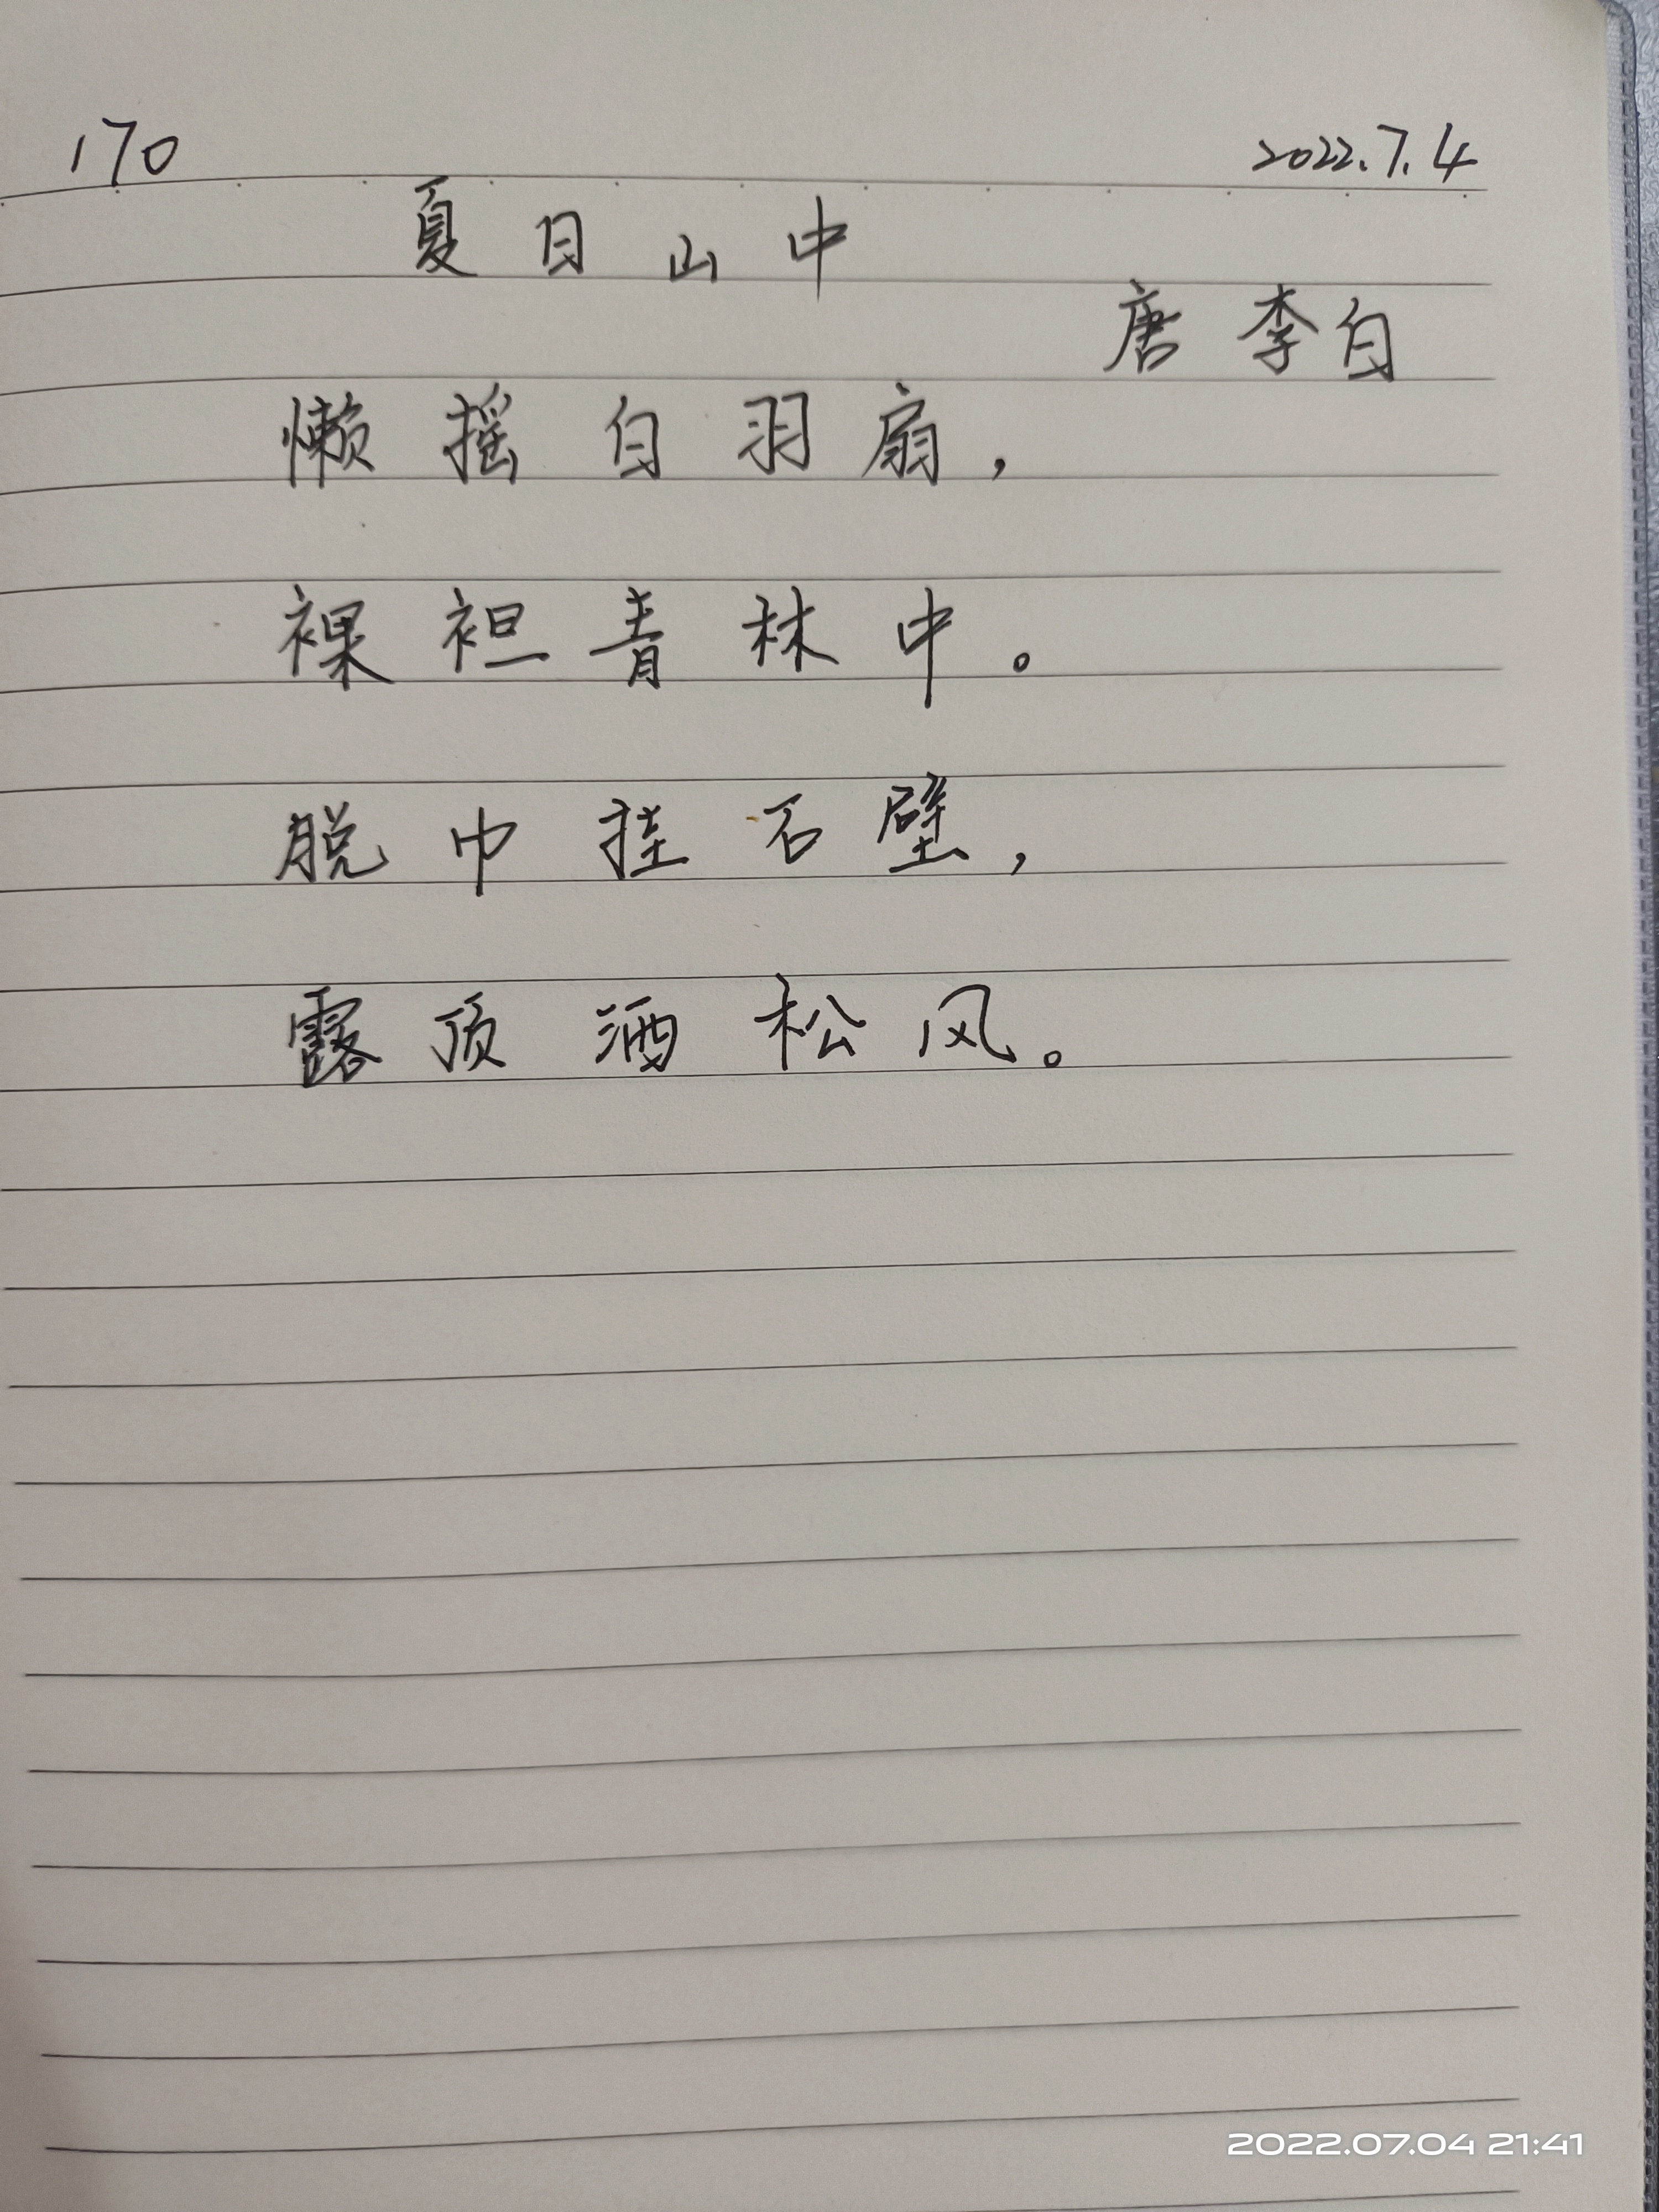 170 2022.7.4
夏日山中
唐 李白
懒摇白羽扇，
裸袒青林中。
脱巾挂石壁，
露顶洒松风。
2022.07.04 21:41